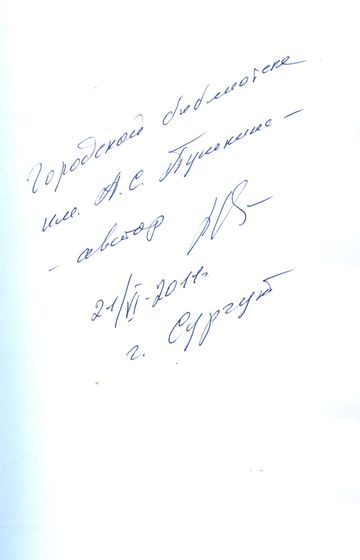 Городской библиотеке
им. А.С. Пушкина –
– автор
21/VI-2011г.
г. Сургут